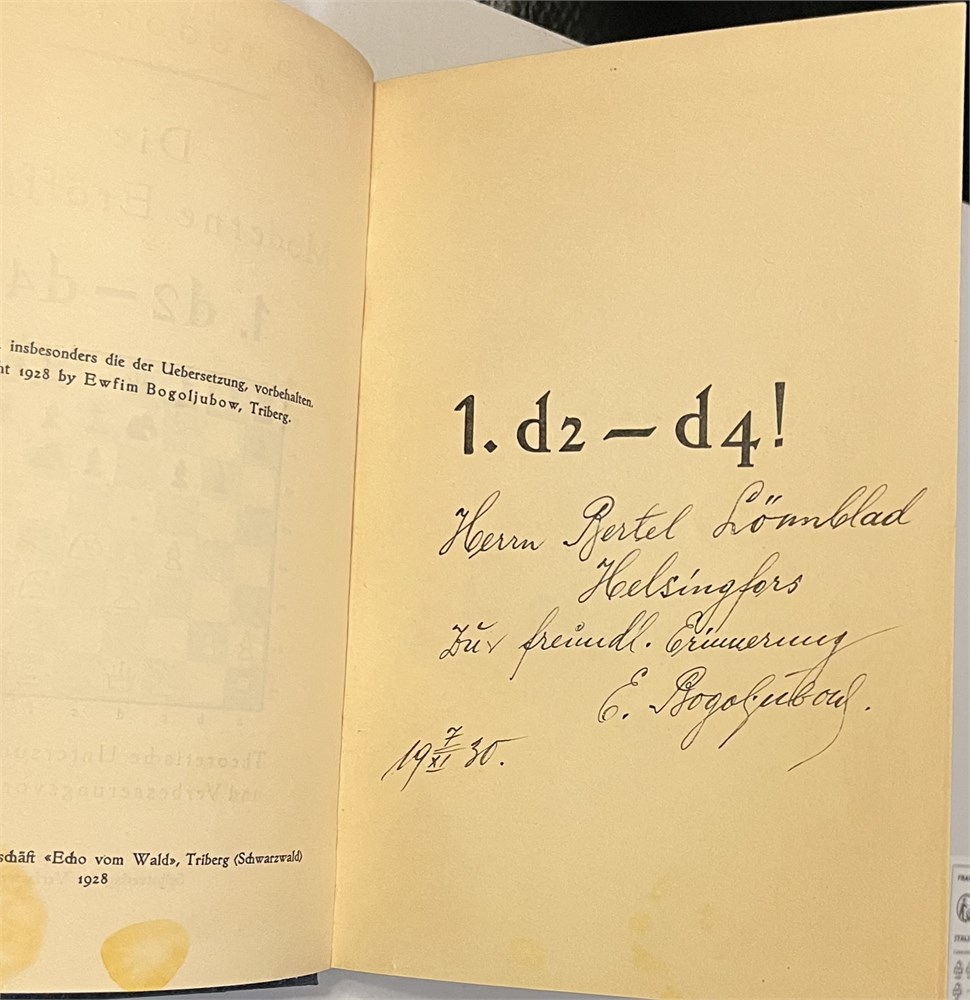 insbesonders die der Uebersetzung, vorbehalten.
ht 1928 by Ewfim Bogoljubow, Triberg.
schäft «Echo vom Wald», Triberg (Schwarzwald)
1928
1. d2 — d4!
Herrn Bertel Lönnblad
Helsingfors
Zur freundl. Erinnerung
E. Bogoljubow.
19 7/XI 30.